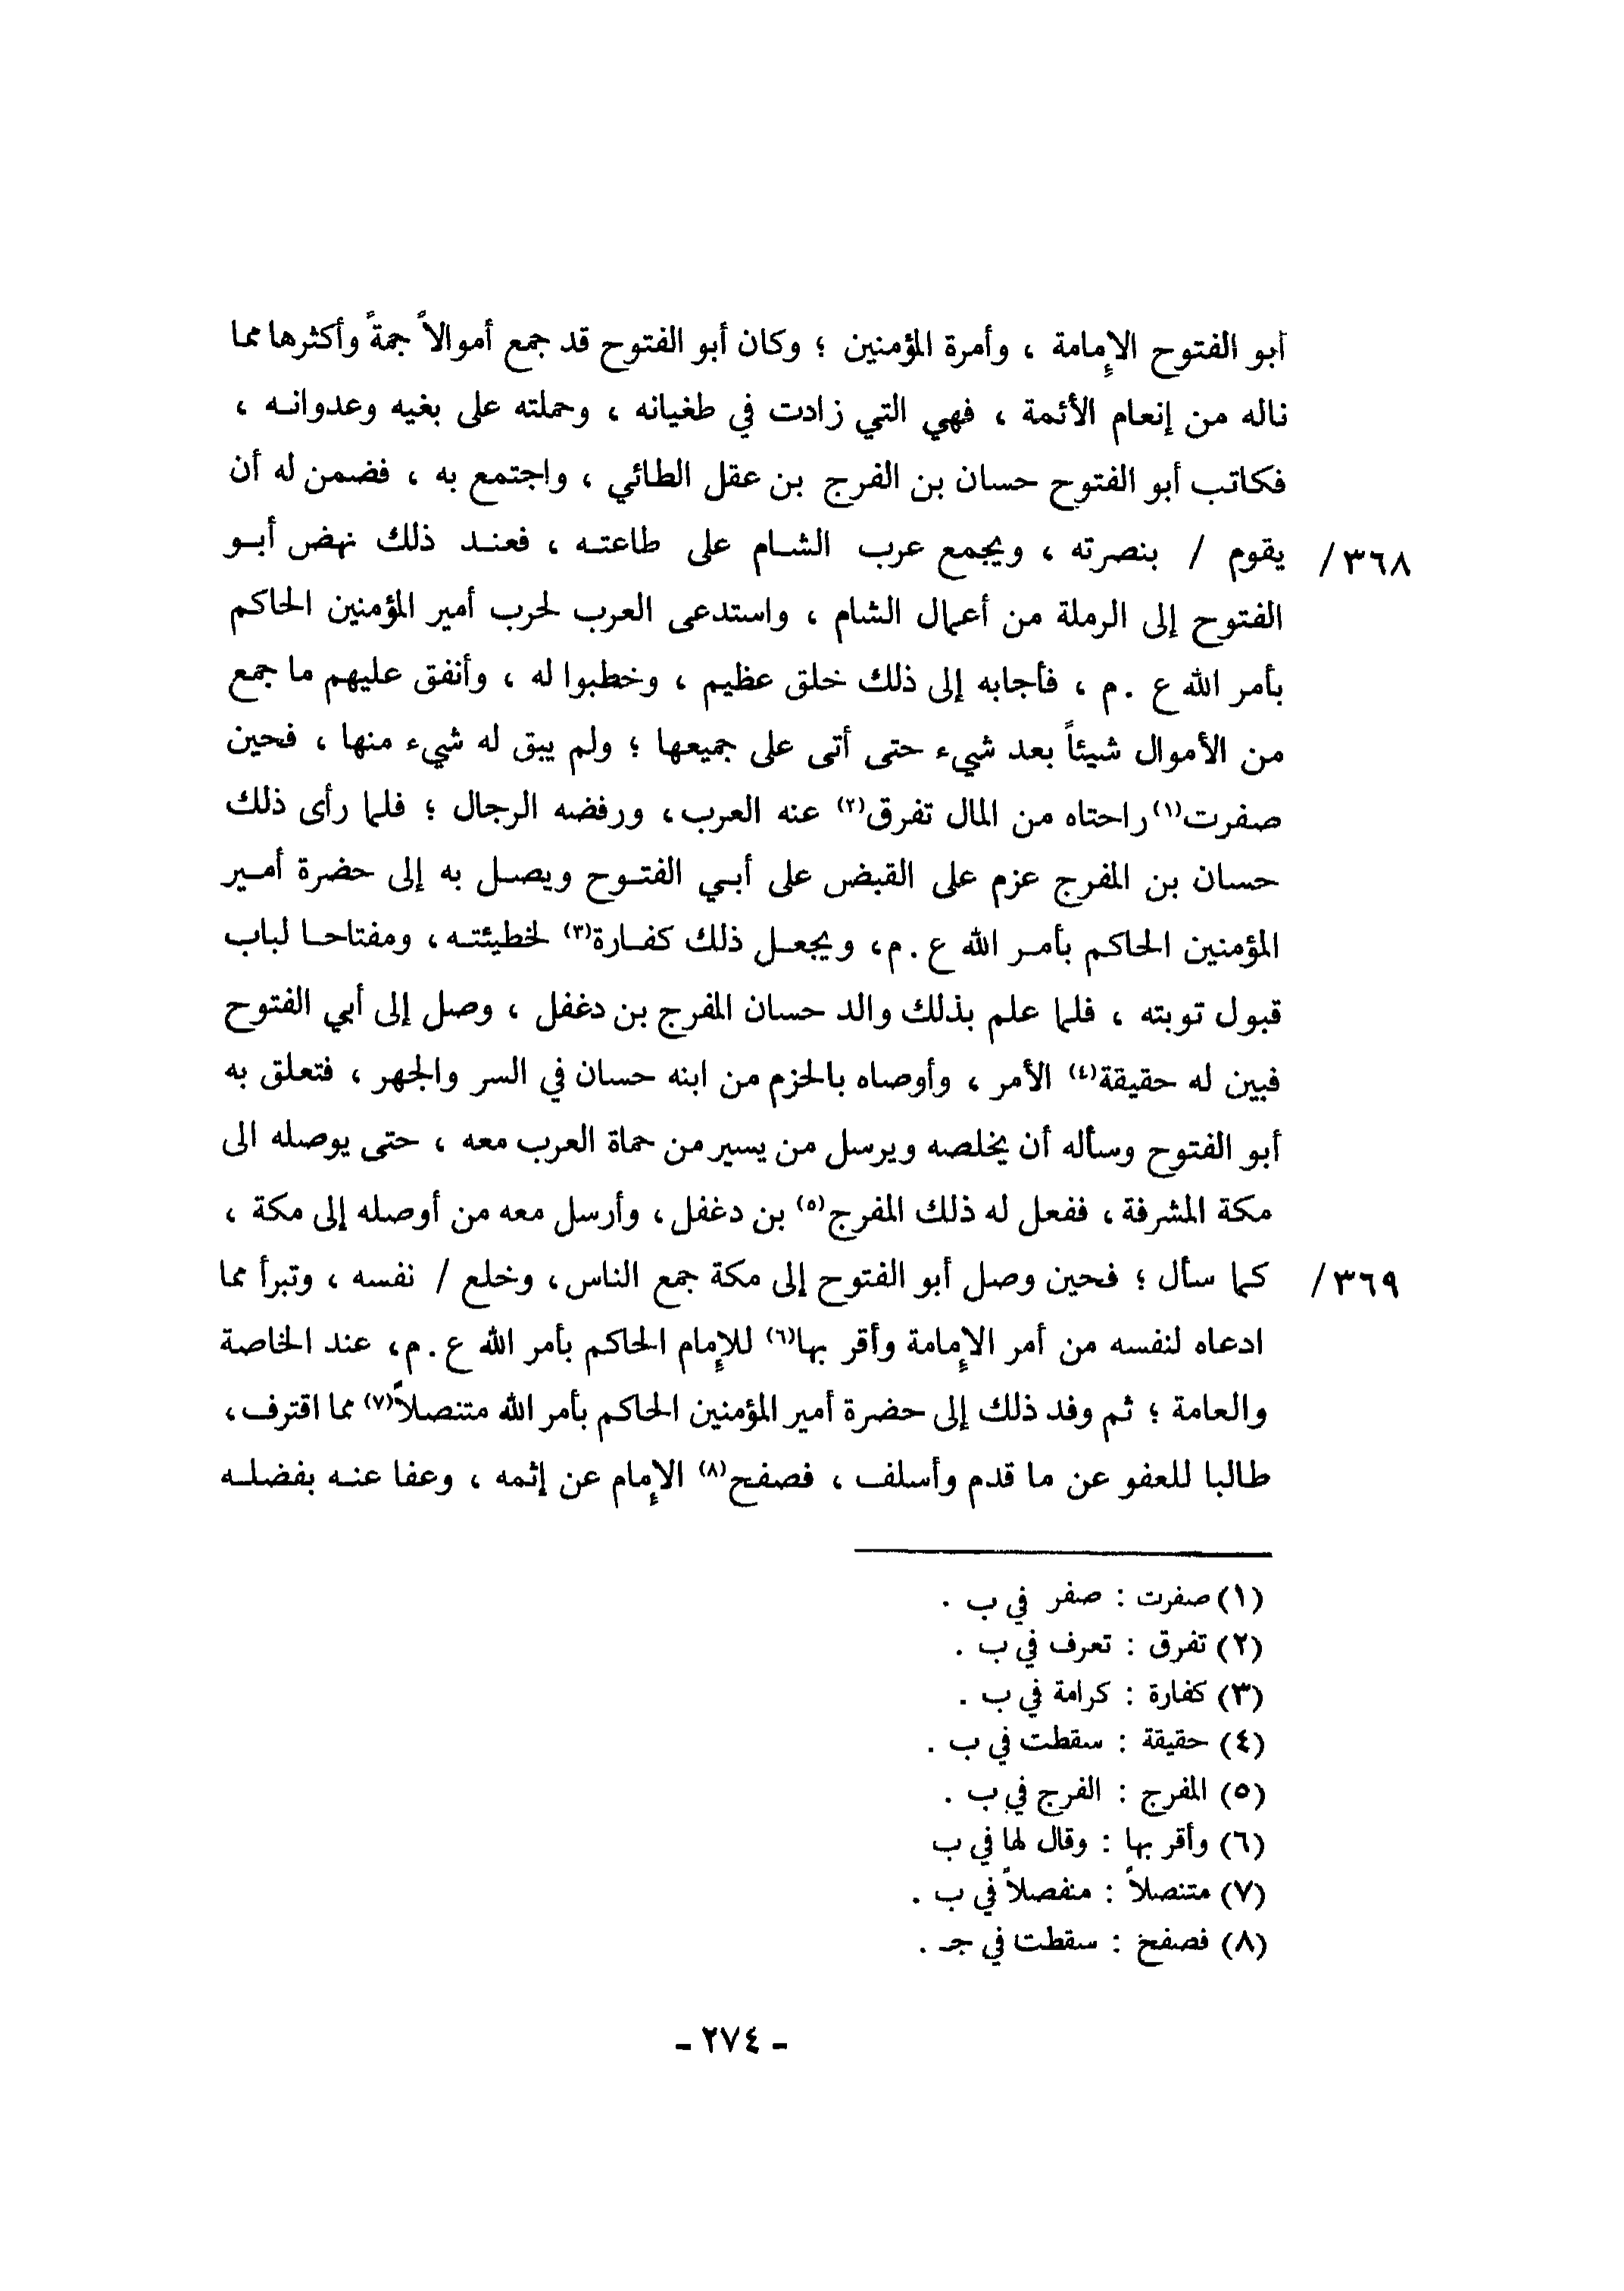 أبو الفتوح الإمامة ، وأمرة المؤمنين ؛ وكان أبو الفتوح قد جمع أموالاً جمةً وأكثرها مما
ناله من إنعام الأئمة ، فهي التي زادت في طغيانه ، وحملته على بغيه وعدوانه ،
فكاتب أبو الفتوح حسان بن الفرج بن عقل الطائي ، واجتمع به ، فضمن له أن
٣٦٨/ يقوم / بنصرته ، ويجمع عرب الشام على طاعته ، فعند ذلك نهض أبو
الفتوح إلى الرملة من أعمال الشام ، واستدعى العرب لحرب أمير المؤمنين الحاكم
بأمر الله ع . م ، فأجابه إلى ذلك خلق عظيم ، وخطبوا له ، وأنفق عليهم ما جمع
من الأموال شيئاً بعد شيء حتى أتى على جميعها ؛ ولم يبق له شيء منها ، فحين
صفرت(١) راحتاه من المال تفرق(٢) عنه العرب، ورفضه الرجال ؛ فلما رأى ذلك
حسان بن المفرج عزم على القبض على أبي الفتوح ويصل به إلى حضرة أمير
المؤمنين الحاكم بأمر الله ع . م، ويجعل ذلك كفارة(٣) لخطيئته، ومفتاحا لباب
قبول توبته ، فلما علم بذلك والد حسان المفرج بن دغفل ، وصل إلى أبي الفتوح
فبين له حقيقة(٤) الأمر ، وأوصاه بالحزم من ابنه حسان في السر والجهر ، فتعلق به
أبو الفتوح وسأله أن يخلصه ويرسل من يسير من حماة العرب معه ، حتى يوصله الى
مكة المشرفة، ففعل له ذلك المفرج(٥) بن دغفل، وأرسل معه من أوصله إلى مكة ،
٣٦٩/ كما سأل ؛ فحين وصل أبو الفتوح إلى مكة جمع الناس، وخلع / نفسه ، وتبرأ مما
ادعاه لنفسه من أمر الإمامة وأقر بها(٦) للإمام الحاكم بأمر الله ع . م، عند الخاصة
والعامة ؛ ثم وفد ذلك إلى حضرة أمير المؤمنين الحاكم بأمر الله متنصلاً(٧) مما اقترف،
طالبا للعفو عن ما قدم وأسلف ، فصفح(٨) الإمام عن إثمه ، وعفا عنه بفضله
(١) صفرت : صفر في ب .
(٢) تفرق : تعرف في ب .
(٣) كفارة : كرامة في ب .
(٤) حقيقة : سقطت في ب .
(٥) المفرج : الفرج في ب .
(٦) وأقر بها : وقال لها في ب
(٧) متنصلاً : منفصلاً في ب .
(٨) فصفخ : سقطت في جـ .
- ٢٧٤ -